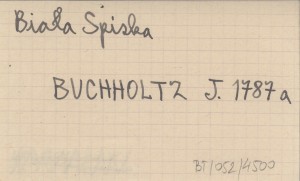 Biała Spiska
BUCHHOLTZ J. 1787a
BT/052/4500